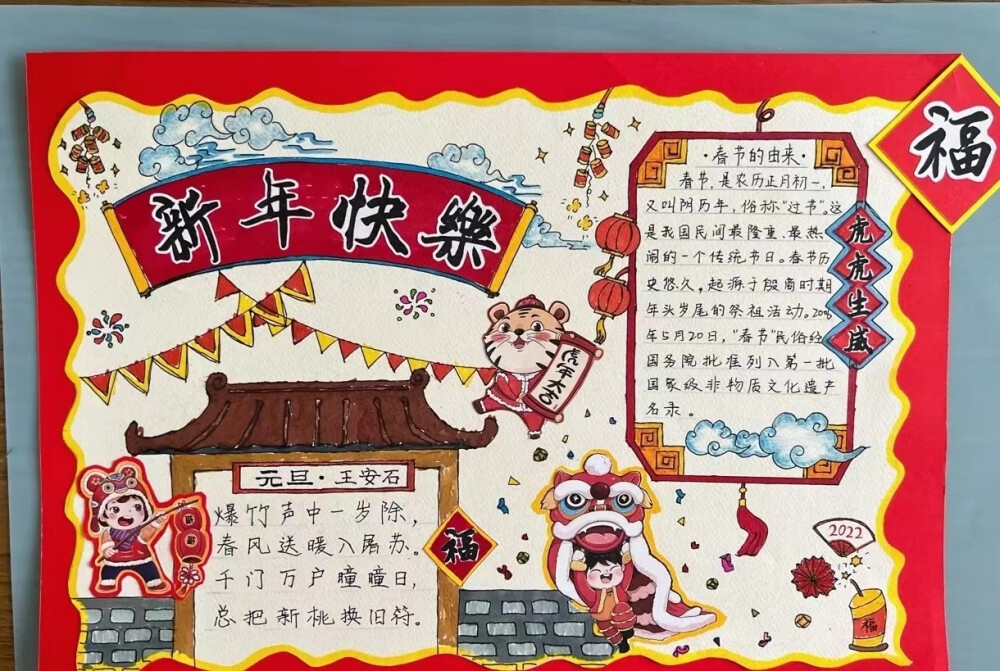 新年快樂
福
·春节的由来·
春节,是农历正月初一,
又叫阴历年,俗称"过节"。这
是我国民间最隆重、最热
闹的一个传统节日。春节历
史悠久,起源于殷商时期
年头岁尾的祭祖活动。2006
年5月20日,"春节"民俗经
国务院批准列入第一批
国家级非物质文化遗产
名录。
虎虎生威
虎年大吉
元旦·王安石
爆竹声中一岁除,
春风送暖入屠苏。
千门万户曈曈日,
总把新桃换旧符。
福
2022
福